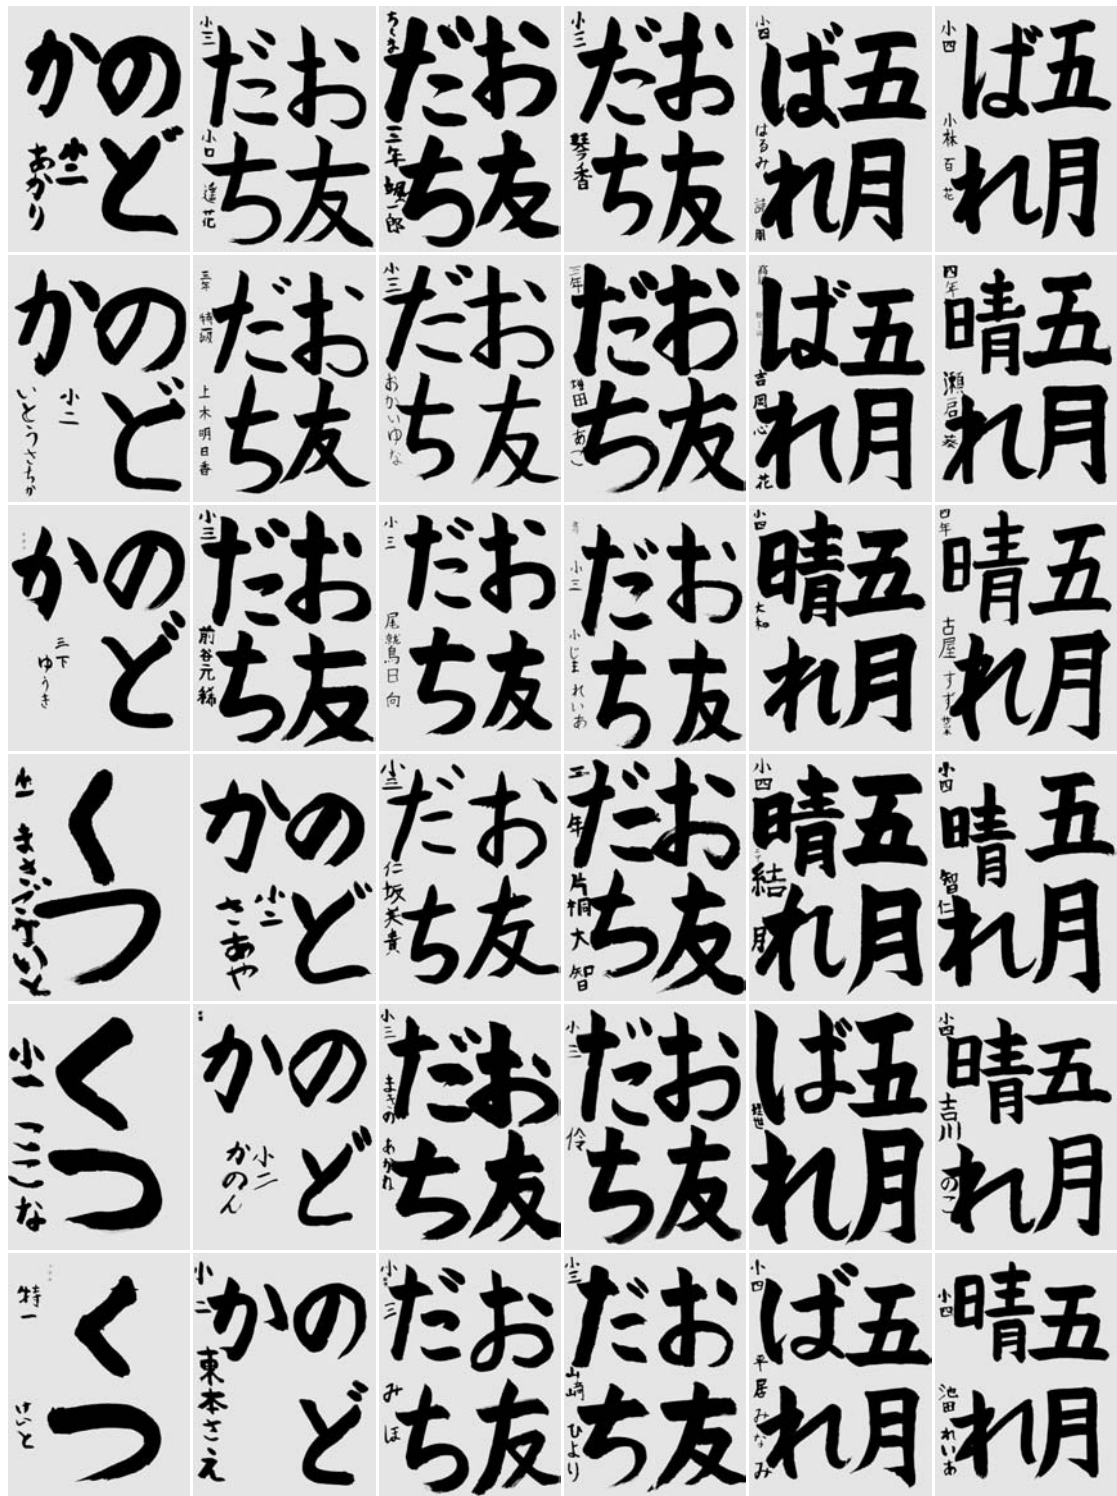 のど
か
小二
あかり
お友
だち
小三 小口 遥花
お友
だち
三年 颯一郎
お友
だち
小三 琴香
五月
ばれ
小四 はるみ
五月
ばれ
小四 小林 百花
のど
か
小二
いとうさちか
お友
だち
三年 特級 上木明日香
お友
だち
小三 おかいゆな
お友
だち
三年
五月
ばれ
吉岡心花
五月
晴れ
四年 瀬戸葵
のど
か
三下
ゆうき
お友
だち
小三 前谷元稀
お友
だち
小三 尾鷲日向
お友
だち
小三 小じま れいあ
五月
晴れ
小四 大和
五月
晴れ
四年 古屋すず菜
くつ
小一
のど
か
小二
さあや
お友
だち
小三 仁坂美貴
お友
だち
三年 片桐大智
五月
晴れ
小四 結月
五月
晴れ
小四 智仁
くつ
小一 ここな
のど
か
小二
かのん
お友
だち
小三 まきの
お友
だち
小三 伶
五月
ばれ
五月
晴れ
小四 吉川 のこ
くつ
特一 けいと
のど
か
小二 東本さえ
お友
だち
小三 みほ
お友
だち
小三 山崎 ひより
五月
ばれ
小四 平居みなみ
五月
晴れ
小四 池田れいあ